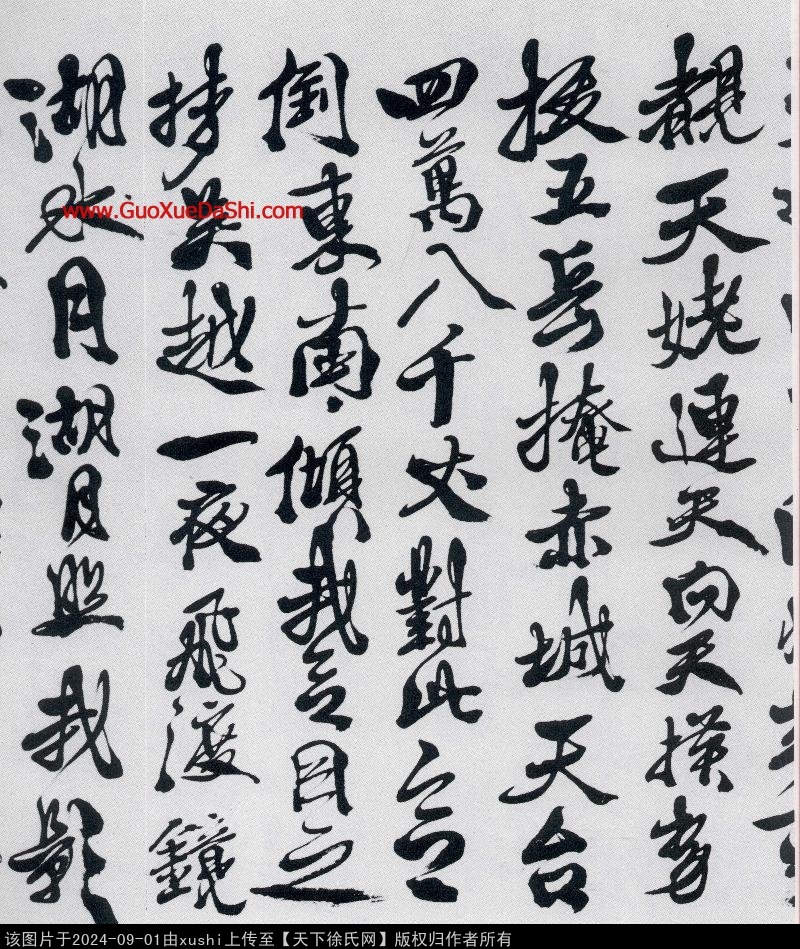 覩天姥連天向天橫勢
拔五岳掩赤城天台
四萬八千丈對此欲
倒東南傾我欲因之
夢吳越一夜飛渡鏡
湖水月湖月照我影
www.GuoXueDaShi.com
该图片于2024-09-01由xushi上传至【天下徐氏网】版权归作者所有